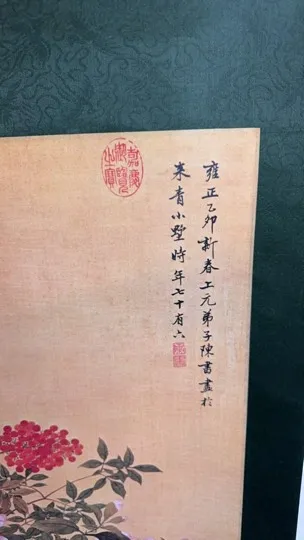 雍正乙卯新春上元弟子陳書畫於
来青小墅時年七十有六
嘉慶御覽之寶